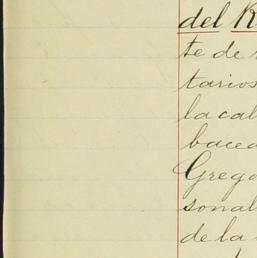 del R
te de
tarios
la cal
bacea
Grego
sonal
de la